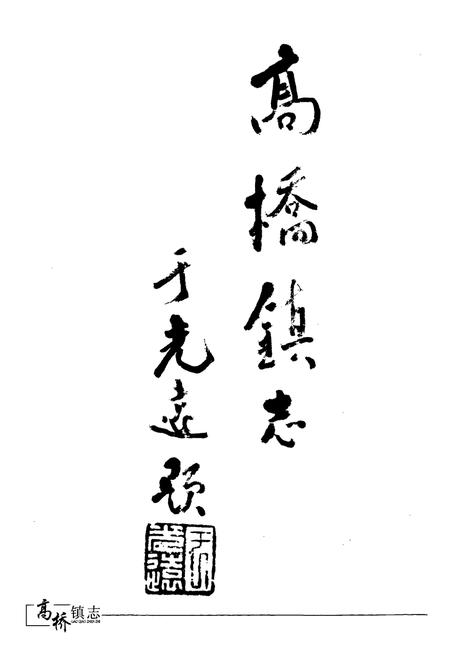 高橋鎮志
于光遠题
于光遠
高桥镇志